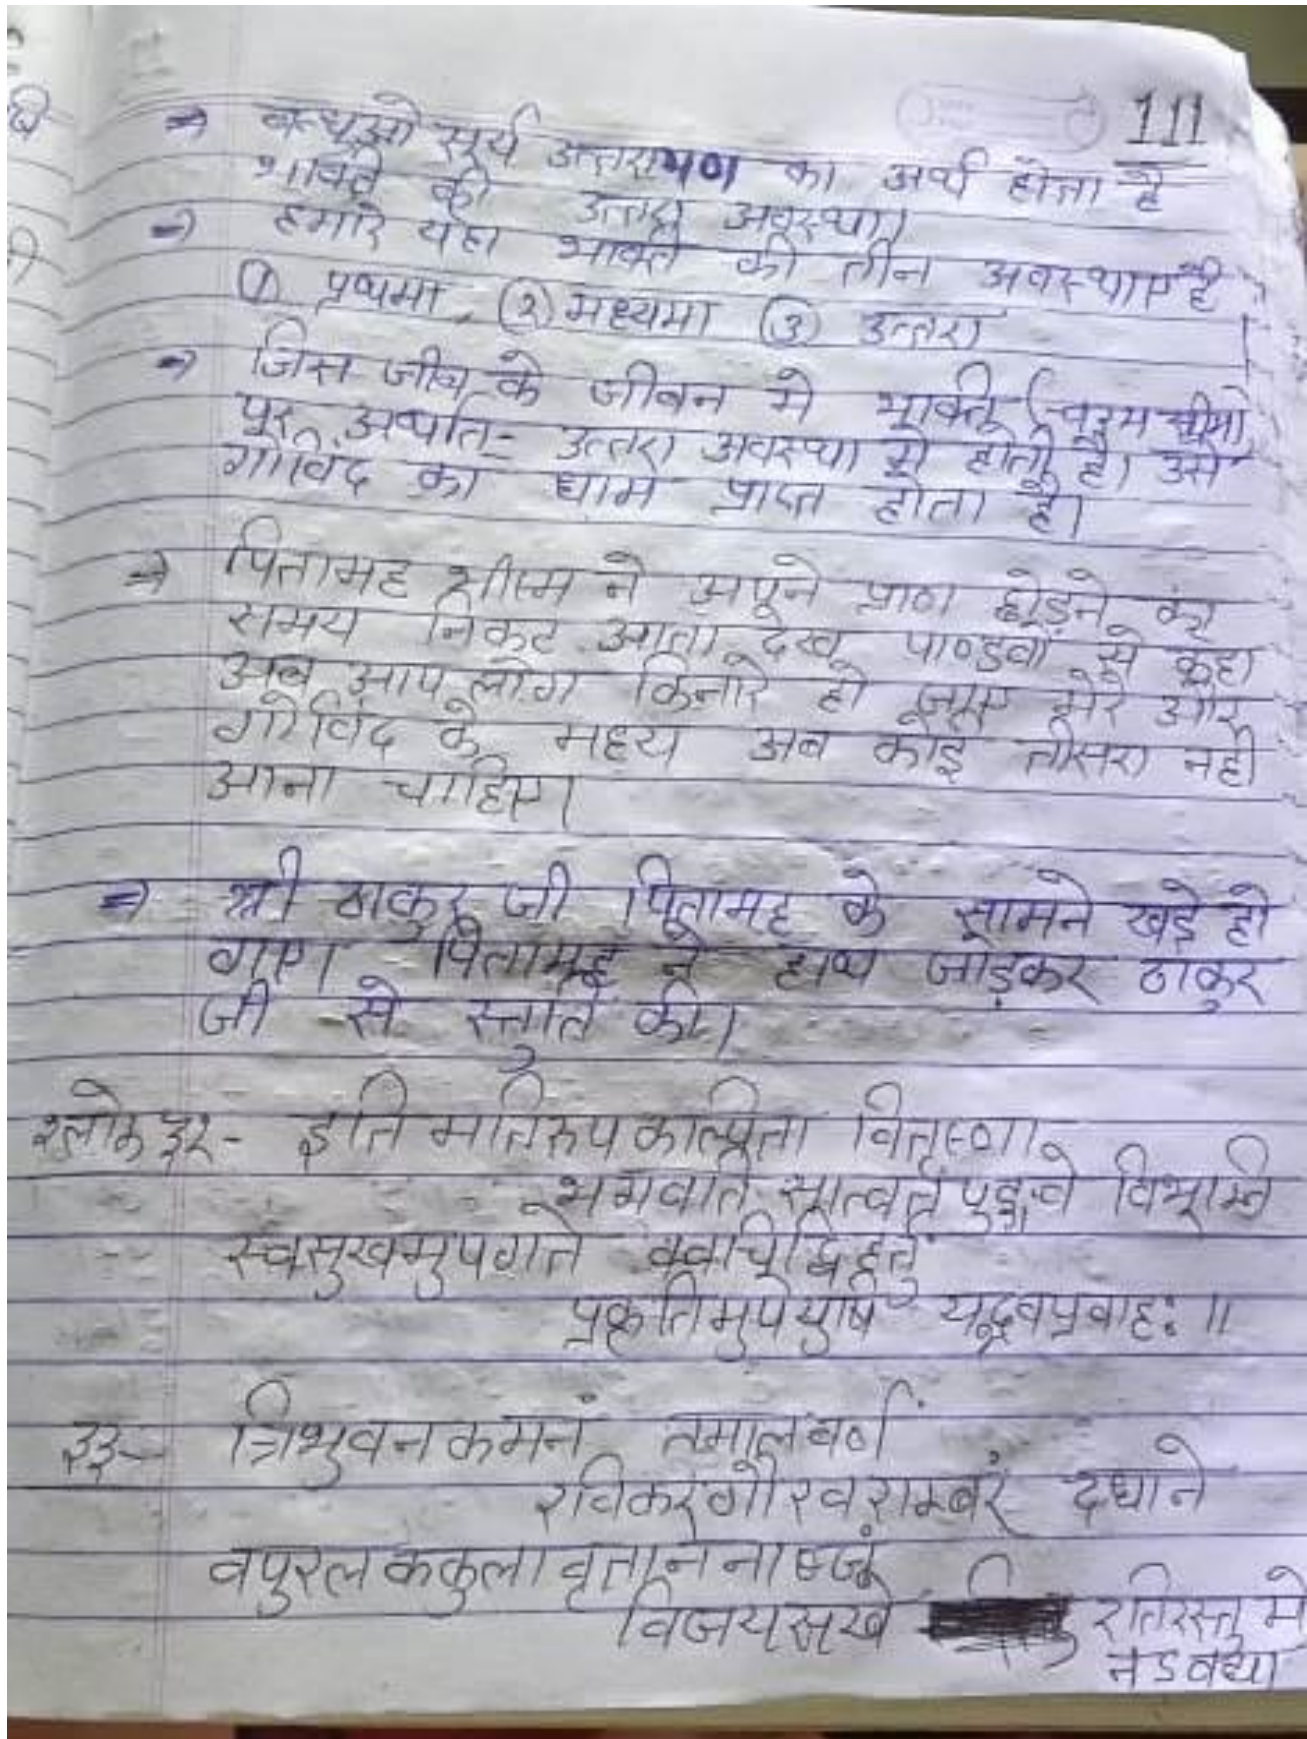 111
⇒ बन्धुओ सूर्य उत्तरायण का अर्थ होता है
भक्ति की उत्तरा अवस्था।
⇒ हमारे यहा भक्ति की तीन अवस्थाए है
① प्रथमा, ② मध्यमा ③ उत्तरा
⇒ जिस जीव के जीवन मे भक्ति चरम सीमा
पर अर्थात- उत्तरा अवस्था मे होती है। उसे
गोविंद का धाम प्राप्त होता है।
⇒ पितामह भीष्म ने अपने प्राण छोड़ने का
समय निकट आता देख पाण्डवों से कहा
अब आप लोग किनारे हो जाए मेरे और
गोविंद के मध्य अब कोई तीसरा नही
आना चाहिए।
⇒ श्री ठाकुर जी पितामह के सामने खड़े हो
गए। पितामह ने हाथ जोड़कर ठाकुर
जी से स्तुति की।
श्लोक ३२- इति मतिरुपकल्पिता वितृष्णा
भगवति सात्वत पुङ्गवे विभूम्नि
स्वसुखमुपगते क्वचिद्विहर्तुं
प्रकृतिमुपेयुषि यद्भवप्रवाहः ॥
३३- त्रिभुवन कमनं तमालवर्णं
रविकरगौरवराम्बरं दधाने
वपुरलककुलावृताननाब्जं
विजयसखे रतिरस्तु मे
नऽवद्या